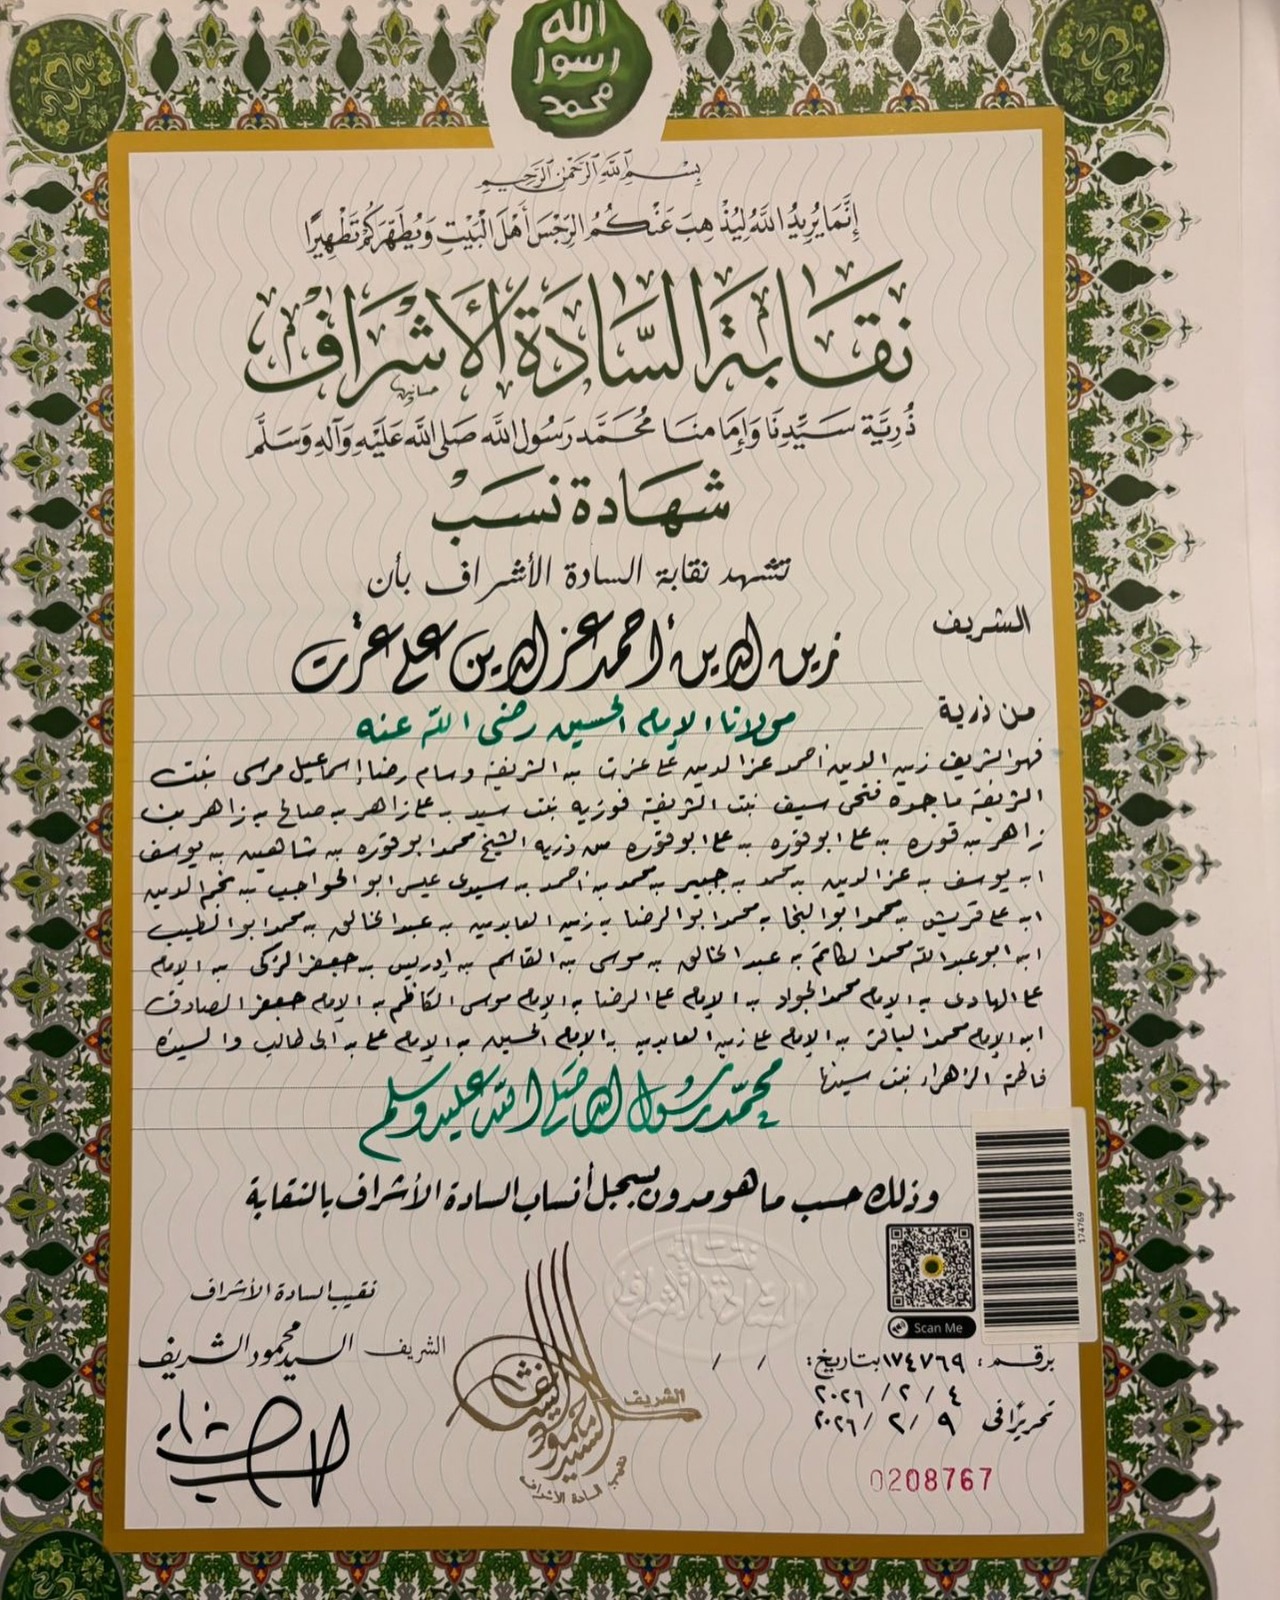 الله
رسول
محمد
بِسْمِ اللَّهِ الرَّحْمَٰنِ الرَّحِيمِ
إِنَّمَا يُرِيدُ اللَّهُ لِيُذْهِبَ عَنْكُمُ الرِّجْسَ أَهْلَ الْبَيْتِ وَيُطَهِّرَكُمْ تَطْهِيرًا
نقابة السادة الأشراف
ذُرِيَّة سَيِّدِنَا وَإِمَامنَا مُحَمَّد رَسُول اللَّه صَلى اللَّه عَلَيْهِ وَآلهِ وَسَلَّم
شهادة نسب
تشهد نقابة السادة الأشراف بأن
الشريف زين الدين أحمد عز الدين على عزت
من ذرية مولانا الإمام الحسين رضى الله عنه
فهو الشريف زين الدين أحمد عز الدين على عزت بن الشريفة وسام رضا إسماعيل مرسى بنت
الشريفة ماجده فتحى سيف بنت الشريفة فوزيه بنت سيد بن على زاهر بن صالح بن زاهر بن
زاهر بن قوره بن على ابو قوره بن على ابو قوره من ذريه الشيخ محمد ابو قوره بن شاهين بن يوسف
ابن يوسف بن عز الدين بن محمد بن جبير بن محمد بن أحمد بن سيدى عيسى ابو الحواجب بن نجم الدين
ابن على قريش بن محمد ابو النجا بن محمد ابو الرضا بن زين العابدين بن عبد الخالق بن محمد ابو الطيب
ابن ابو عبد الله محمد الكاتم بن عبد الخالق بن موسى بن القاسم بن إدريس بن جعفر الزكى بن الإمام
على الهادى بن الإمام محمد الجواد بن الإمام على الرضا بن الإمام موسى الكاظم بن الإمام جعفر الصادق
ابن الإمام محمد الباقر بن الإمام على زين العابدين بن الإمام الحسين بن الإمام على بن ابى طالب والسيدة
فاطمة الزهراء بنت سيدنا محمد رسول الله صلى الله عليه وسلم
وذلك حسب ما هو مدون بسجل أنساب السادة الأشراف بالنقابة
نقابة
السادة الأشراف
174769
Scan Me
نقيب السادة الأشراف
الشريف السيد محمود الشريف
الشريف
نقيب السادة الأشراف
برقم: ١٧٤٧٦٩ بتاريخ: / /
٤ / ٢ / ٢٠٢٦
تحريرًا فى ٩ / ٢ / ٢٠٢٦
0208767